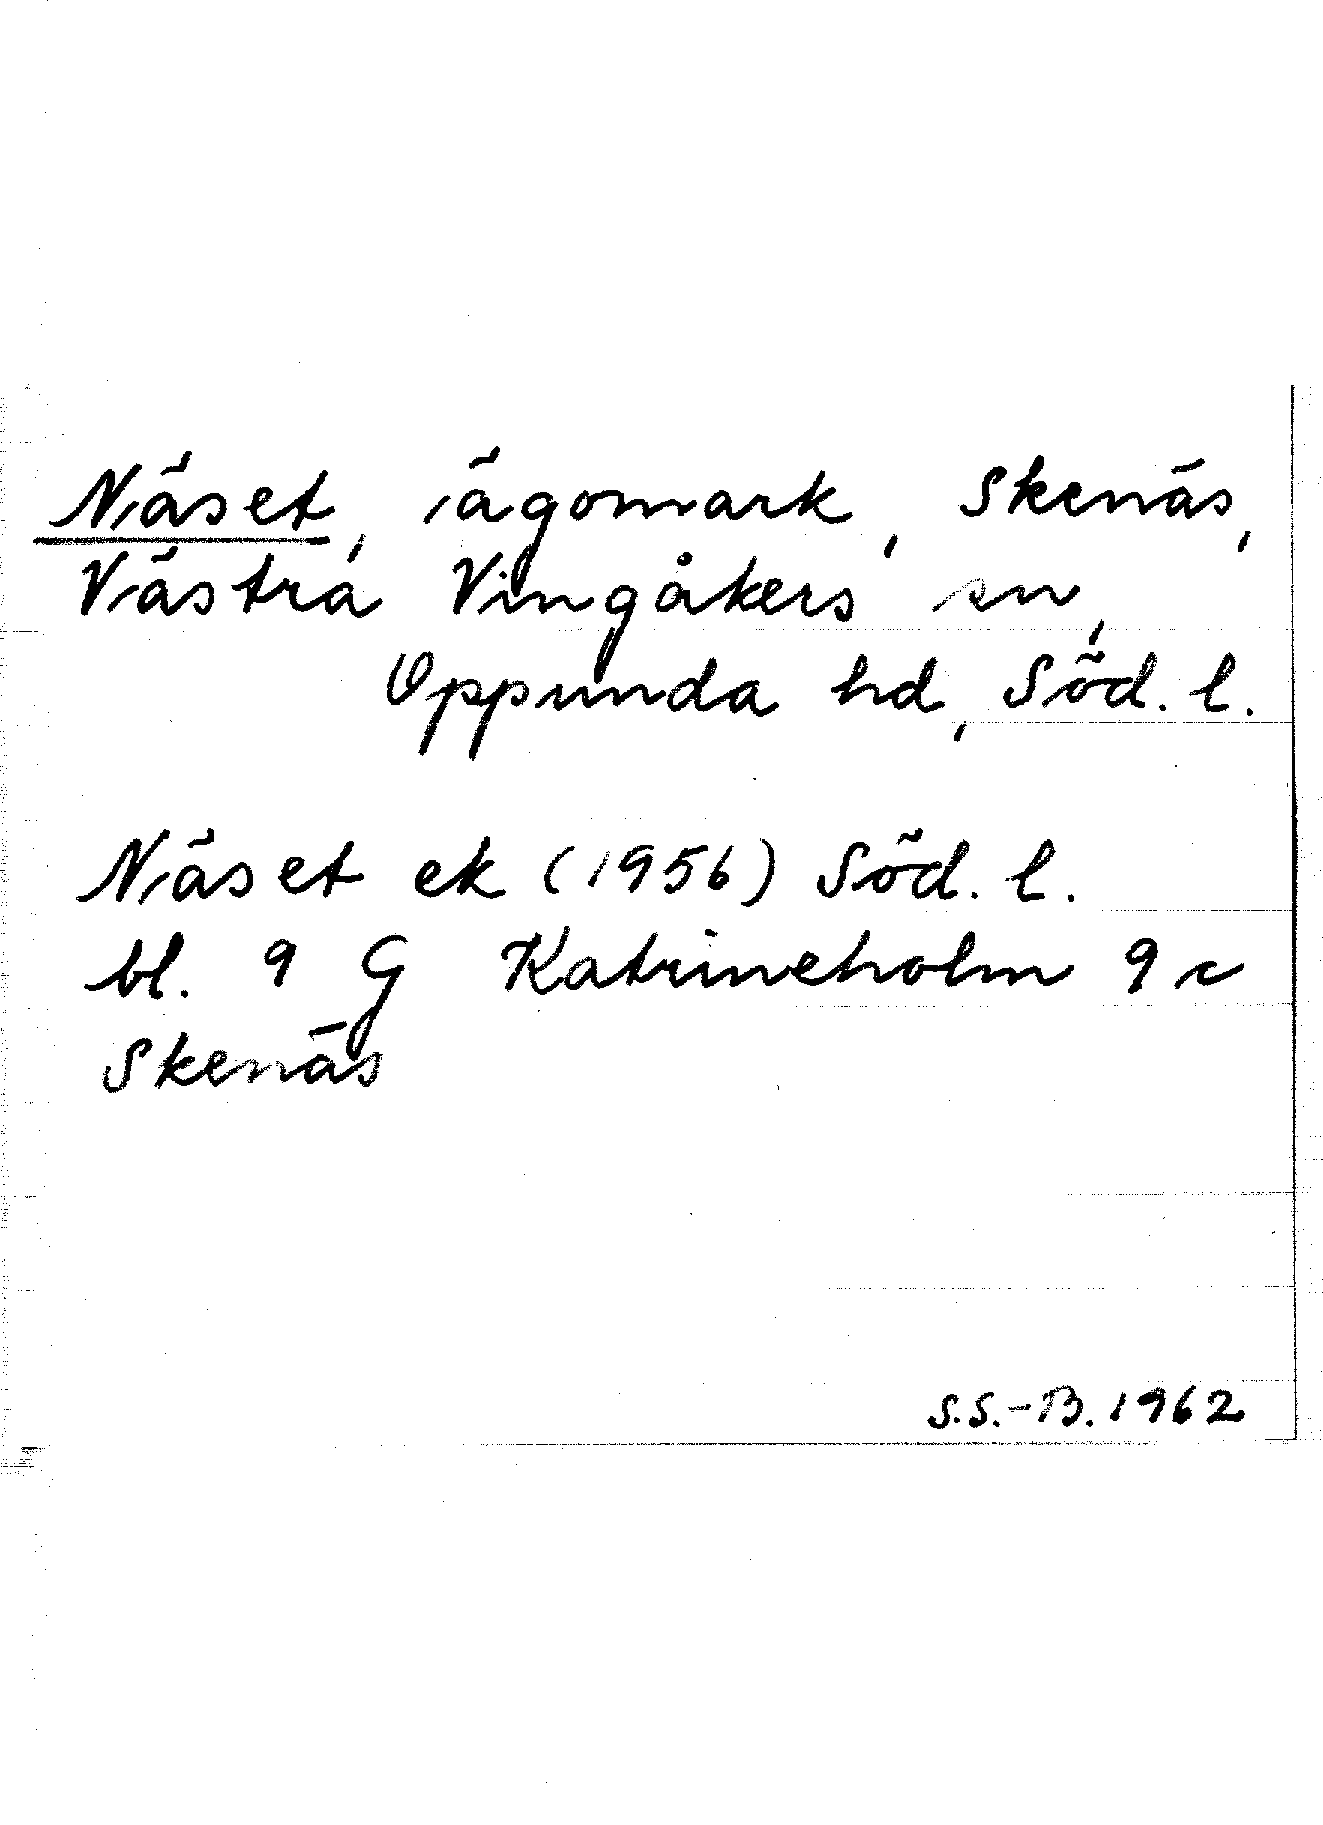 Näset, ägomark, Skenäs,
Västra Vingåkers sn,
Oppunda hd, Söd. l.
Näset ek (1956) Söd. l.
bl. 9 G Katrineholm 9 c
Skenäs
S.S.-B. 1962